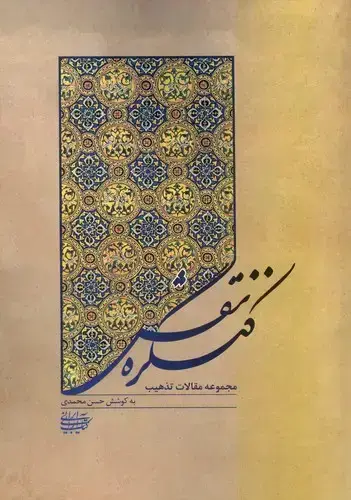 کنگره نقش
مجموعه مقالات تذهیب
به کوشش حسن محمدی